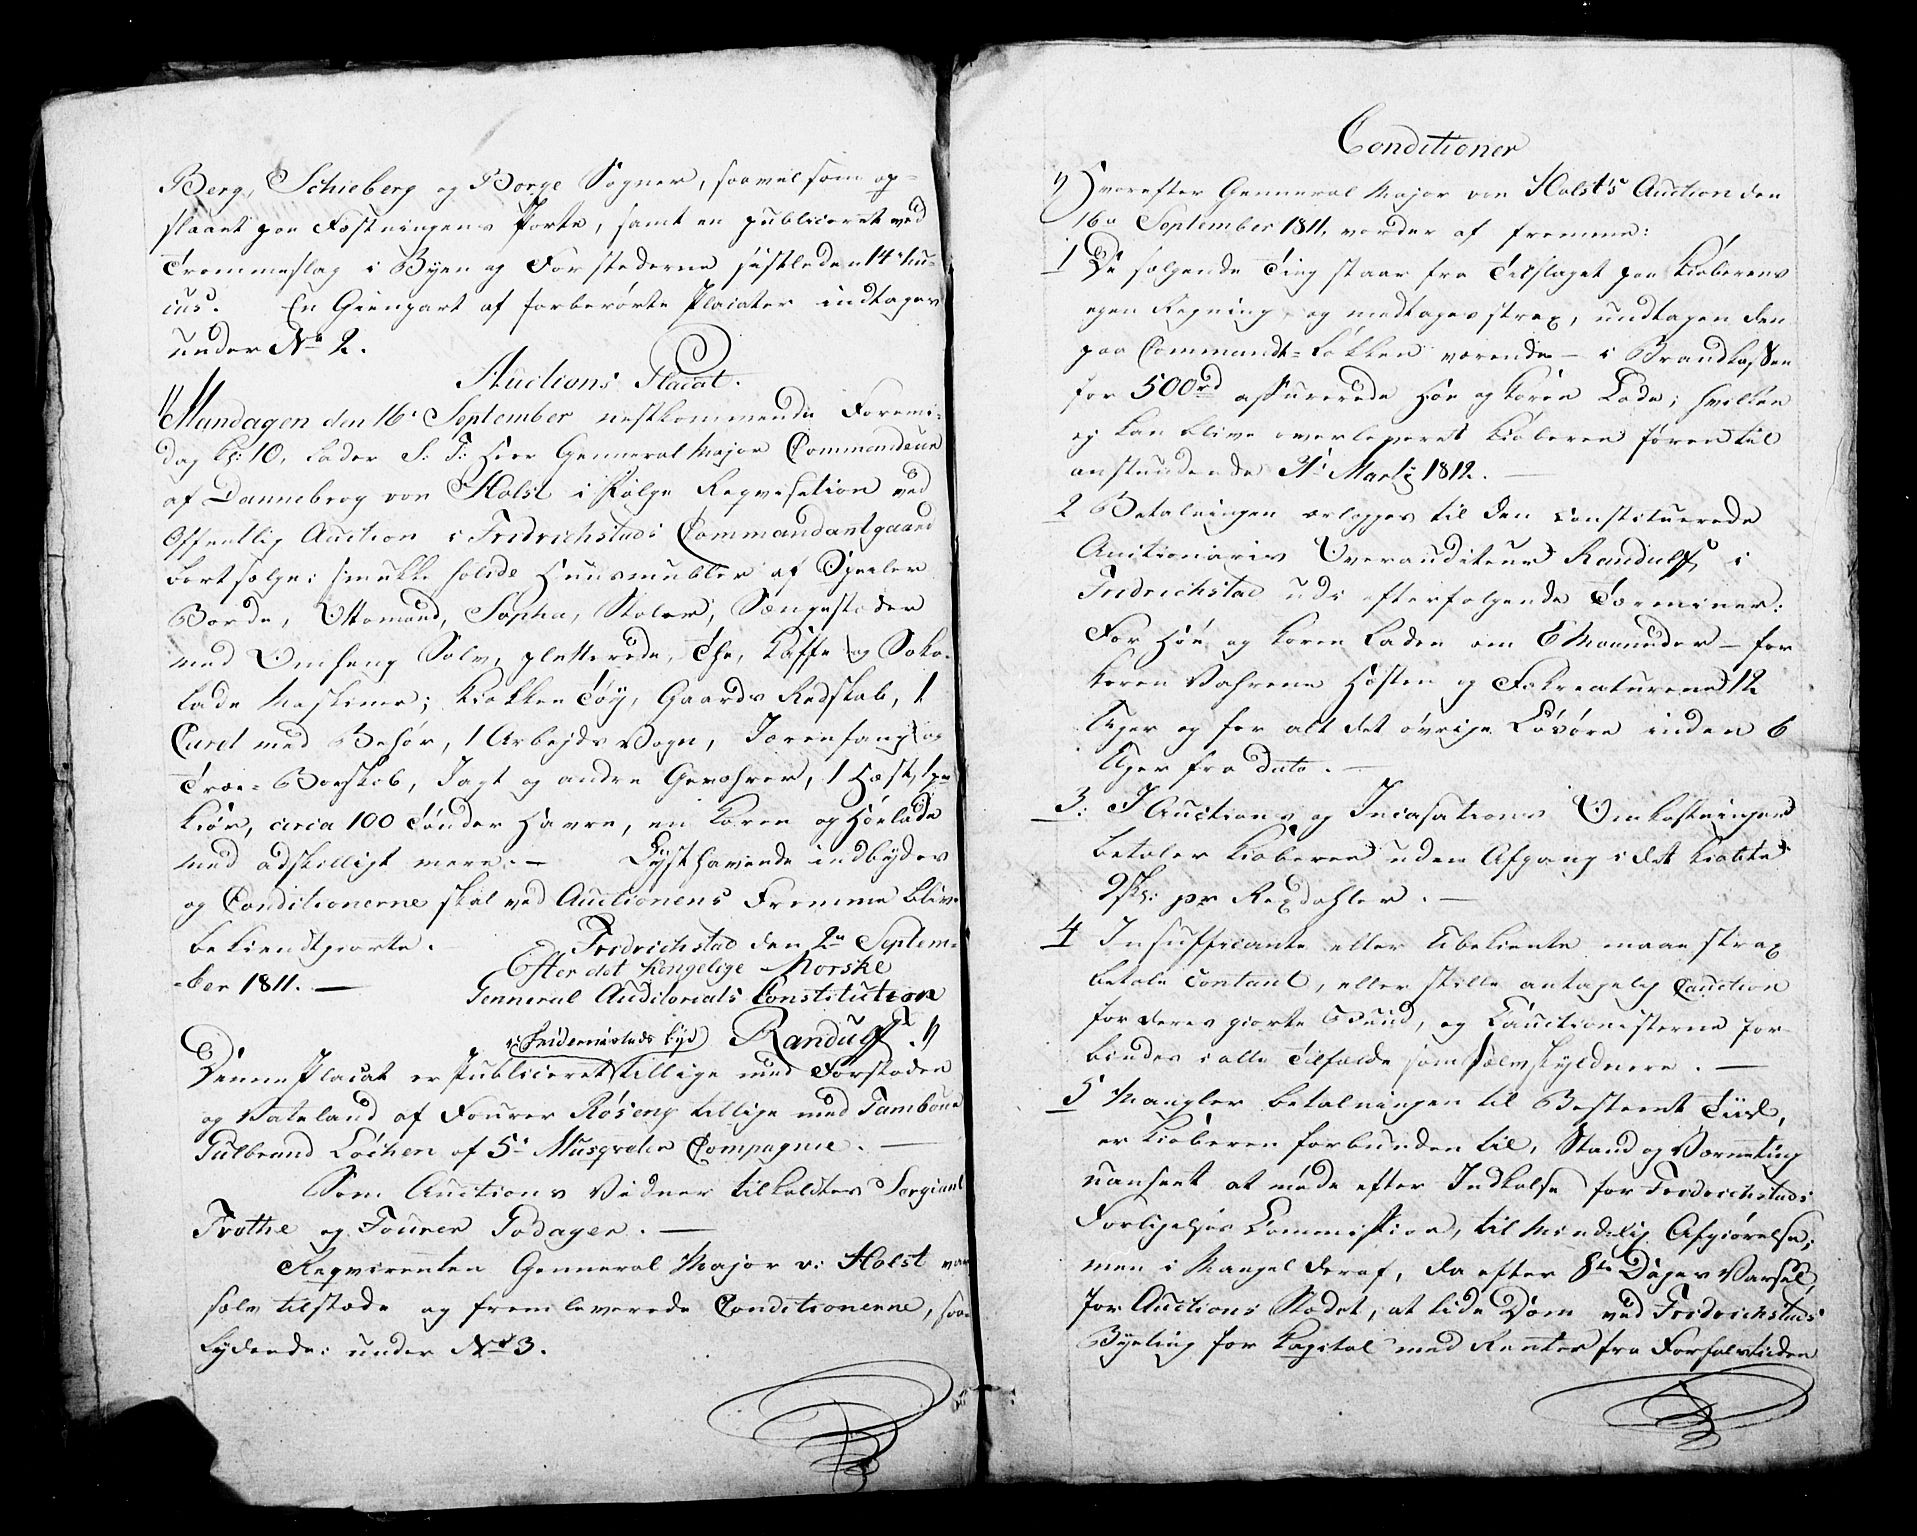 Berg, Schieberg og Borge Sogner, saavelsom op-
slaaet paa Fæstningens Porte, samt en publiceret ved
Trommeslag i Byen og Forstæderne sistleden 14
cus. En Gienpart af forberørte Placater indtages
under No 2.
Auctions Placat.
Mandagen den 16 September nestkommende Formi-
dag Kl: 10, lader S: T: Herr Genneral Major Commandeur
af Dannebrog von Holst i Følge Reqvisition ved
Offentlig Auction i Fridrichstads Commandantgaard
bortsælge: smukke solide Huusmubler af Speiler
Borde, Ottomand, Sopha, Stoler, Sængesteder
med Omheng Sølv, pletterede, The, Kaffe og Soko-
lade Maskiner; Kiøkken Tøy, Gaards Redskab, 1
Curet med Behør, 1 Arbejds Vogn, Jærnfang og
Træe-Boeskab, Jagt og andre Geværer, 1 Hæst, 1 pr
Kiør, circa 100 Tønder Havre, en Korn og Høelade
med adskilligt mere. — Lysthavende indbydes
og Conditionerne skal ved Auctionens Fremme blive
bekiendtgiorte. Fridrichstad den 2 Septem-
-ber 1811. — Efter det kongelige Norske
Genneral Auditoriats Constitution
i Friderichstads Byd Randulff."
Denne Placat er Publiceret tillige med Forstaden
og Vateland af Fourer Røseng tillige med Tambour
Gulbrand Løchen af 5 Musqveder Compagnie. —
Som Auctions Vidner tilkaldtes Sergiant
Frothe og Fourer Godager. —
Reqvirenten Genneral Major v: Holst var
sælv tilstæde og fremleverede Conditionerne, saa-
lydende: under No 3.
Conditioner
") Hvorefter Genneral Major von Holst's Auction den
16 September 1811. vorder af fremme:
1 De sælgende Ting staar fra Tilslaget paa Kiøberens
egen Regning og medtages strax, undtagen den
paa Commandt=Løkken værende — i Brandkassen
for 500rd assurerede Høe og Korn Lade; hvilken
ej kan blive overleveret Kiøberen føren til
anstundende 31 Martij 1812. —
2 Betalningen erlegges til den constituerede
Auctionarius Overauditeur Randulff i
Fridrichstad udi efterfølgende Terminer:
For Høe og Korn Laden om 6 Maaneder — for
Korn Vahrene Hæsten og Fæekreaturene 12
Uger og for alt det øvrige Løsøre inden 6
Uger fra dato. —
3: I Auctions og Incasations Omkostninger
betaler Kiøberen uden Afgang i det Kiøbte
2sk: pr Rixdahler. —
4 Insufficiante eller Ubekiente maae strax
betale contant, eller stille antagelig Cauction
for deres giorte Buud, og Cauctionisterne for-
bindes i alle Tilfælde som sælvskyldnere. —
5 Mangler betalningen til Bestemt Tiid,
er Kiøberen forbunden til, Stand og Værneting
uanseet at møde efter Indkalse for Fridrichstads
Forligelses Commission, til Mindelig Afgiørelse;
men i Mangel deraf, da efter 8te Dages Varsel,
for Auctions Rædet, at lide Dom ved Fridrichstads
Byeting for Kapital med Renter fra Forfalstiden